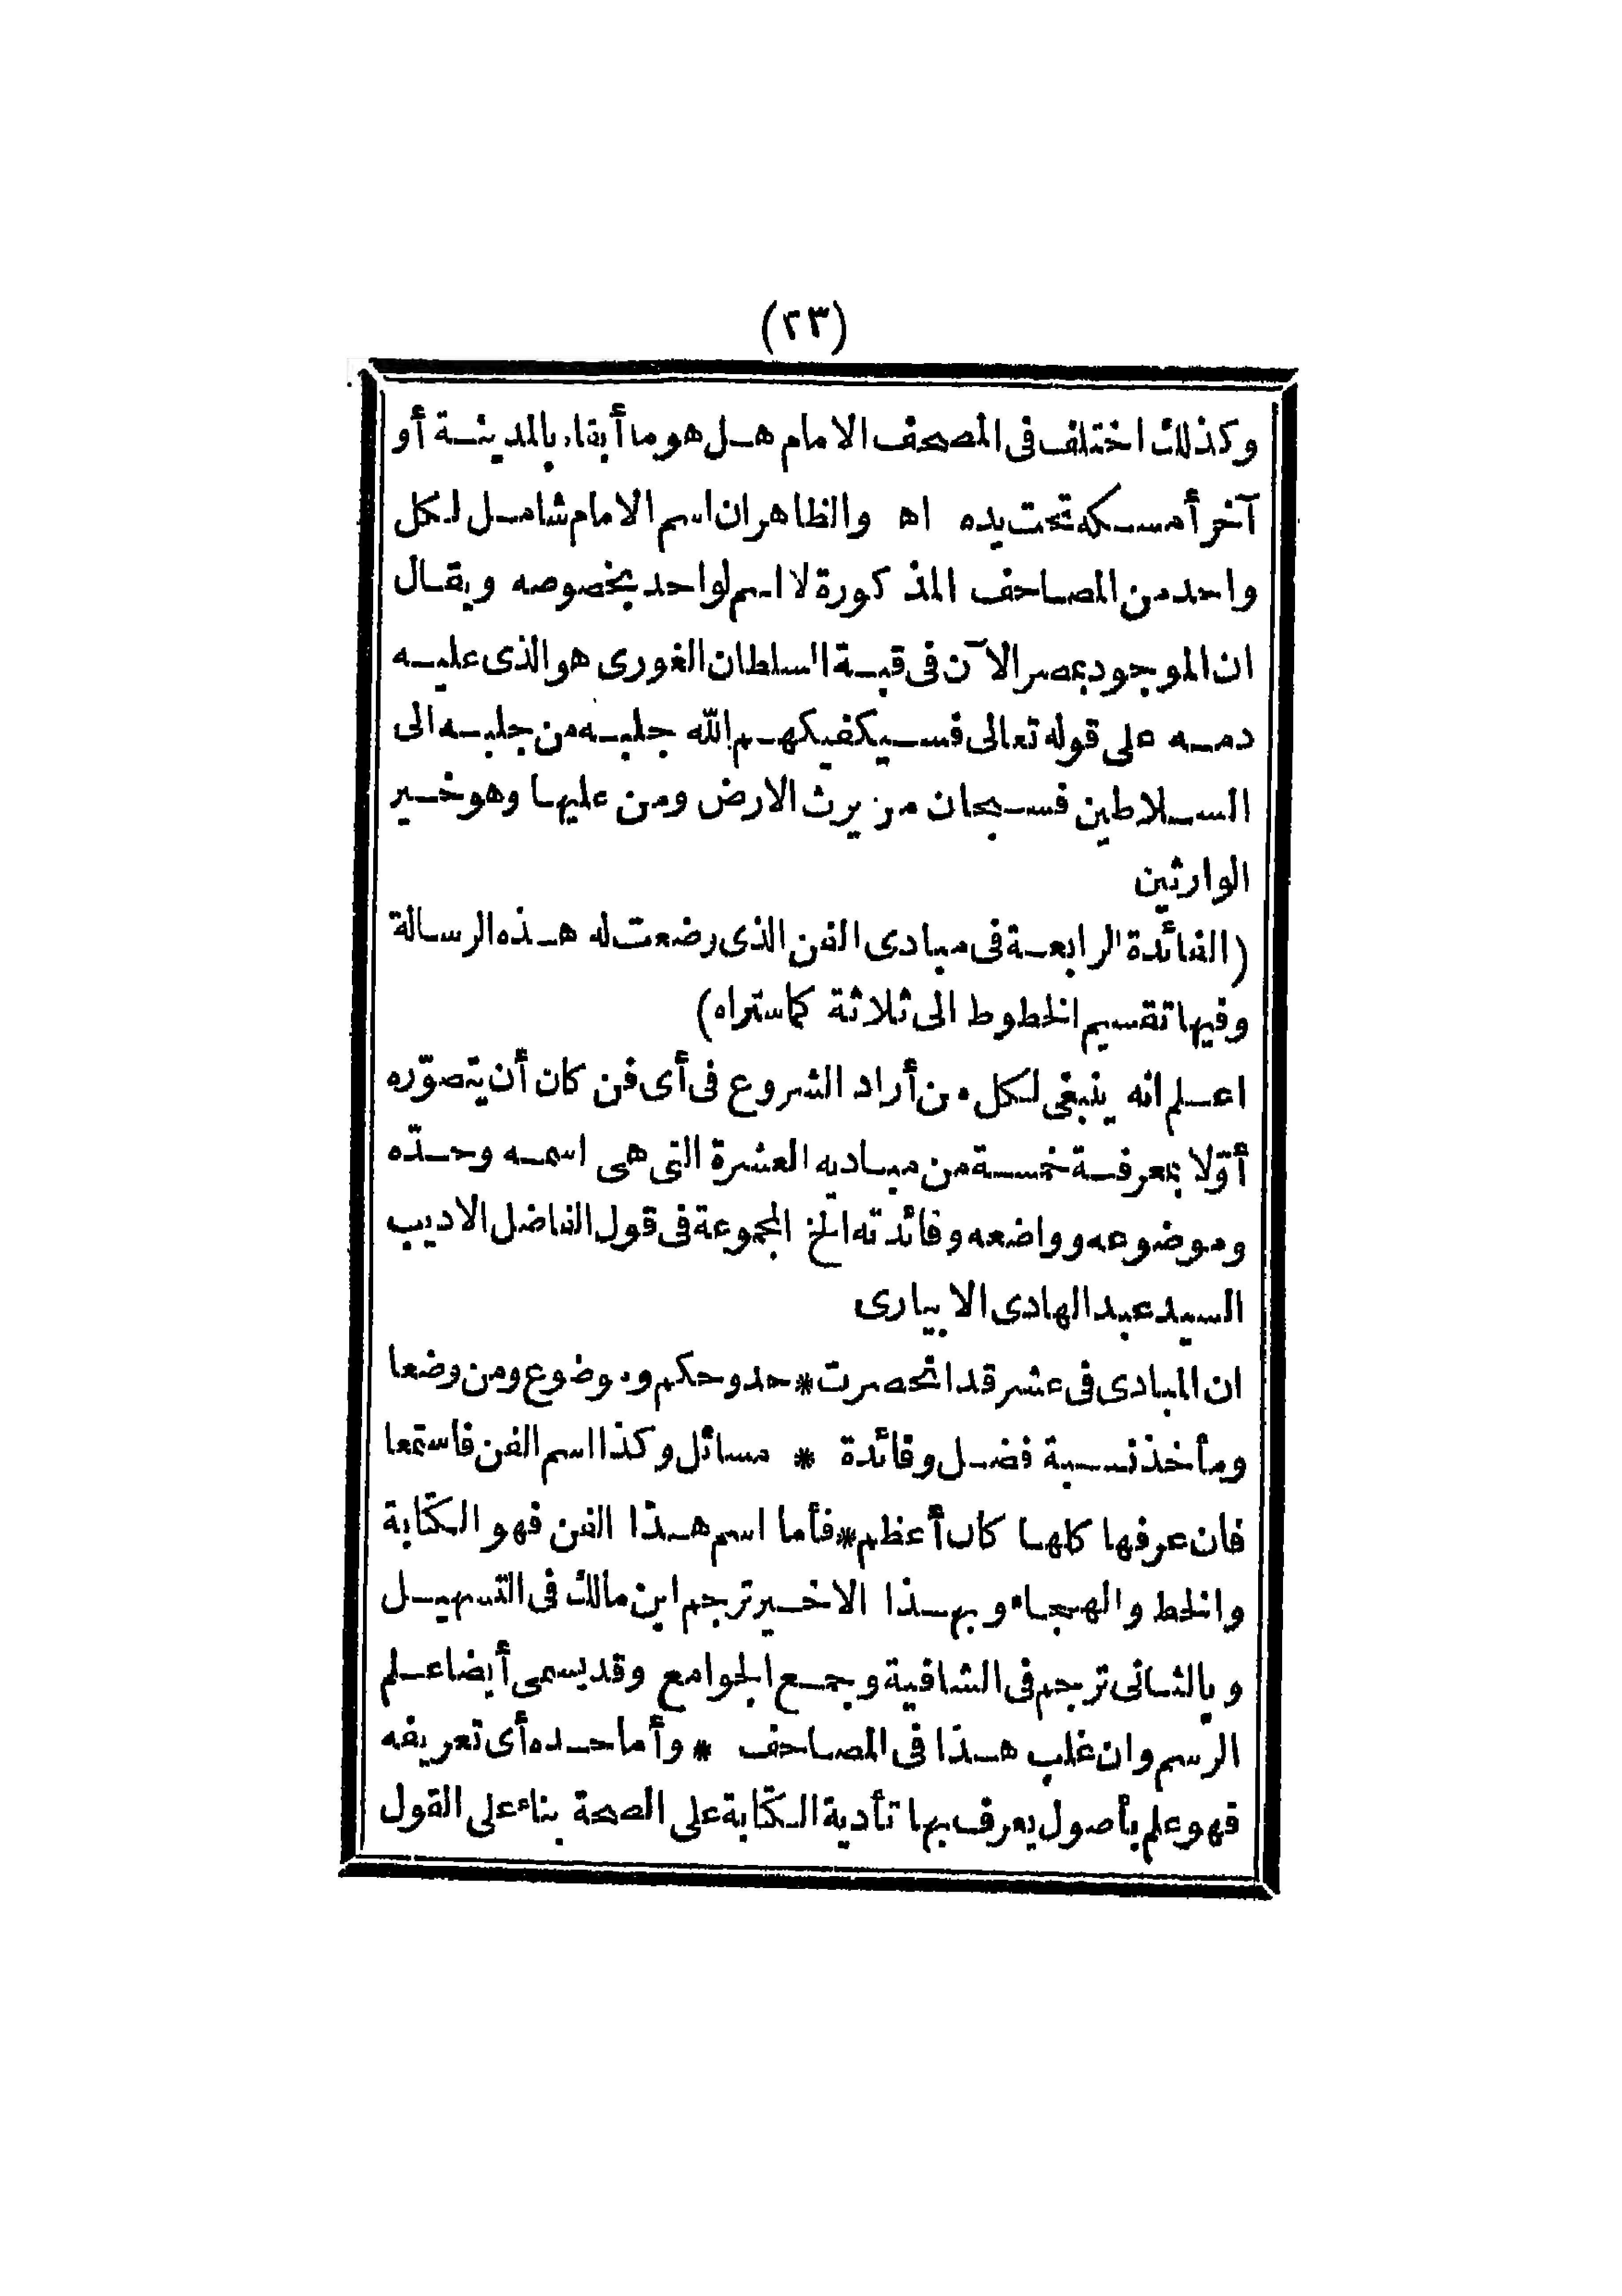 (٢٣)
وكذلك اختلف فى المصحف الامام هل هو ما أبقاه بالمدينة أو
آخر أمسكه تحت يده اه والظاهر ان اسم الامام شامل لكل
واحد من المصاحف المذكورة لا اسم لواحد بخصوصه ويقال
ان الموجود بمصر الآن فى قبة السلطان الغورى هو الذى عليه
دمه على قوله تعالى فسيكفيكهم الله جلبه من جلبه الى
السلاطين فسبحان من يرث الارض ومن عليها وهو خير
الوارثين
(الفائدة الرابعة فى مبادى الفن الذى وضعت له هذه الرسالة
وفيها تقسيم الخطوط الى ثلاثة كما ستراه)
اعلم انه ينبغى لكل من أراد الشروع فى أى فن كان أن يتصوّره
أوّلا بمعرفة خمسة من مباديه العشرة التى هى اسمه وحدّه
وموضوعه وواضعه وفائدته الخ المجموعة فى قول الفاضل الاديب
السيد عبد الهادى الابيارى
ان المبادى فى عشر قد انحصرت * حد وحكم وموضوع ومن وضعا
ومأخذ نسبة فضل وفائدة * مسائل وكذا اسم الفن فاستمعا
فان عرفها كلها كان أعظم * فأما اسم هذا الفن فهو الكتابة
والخط والهجاء وبهذا الاخير ترجم ابن مالك فى التسهيل
وبالثانى ترجم فى الشافية وجمع الجوامع وقد يسمى أيضا علم
الرسم وان غلب هذا فى المصاحف * وأما حده أى تعريفه
فهو علم بأصول يعرف بها تأدية الكتابة على الصحة بناء على القول